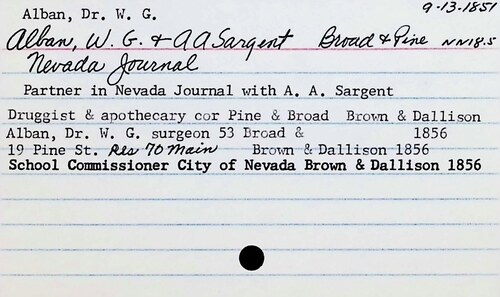 Alban, Dr. W. G. 9-13-1851
Alban, W. G. & A A Sargent Broad & Pine NN18.5
Nevada Journal
Partner in Nevada Journal with A. A. Sargent
Druggist & apothecary cor Pine & Broad Brown & Dallison
Alban, Dr. W. G. surgeon 53 Broad & 1856
19 Pine St. Res 70 Main Brown & Dallison 1856
School Commissioner City of Nevada Brown & Dallison 1856